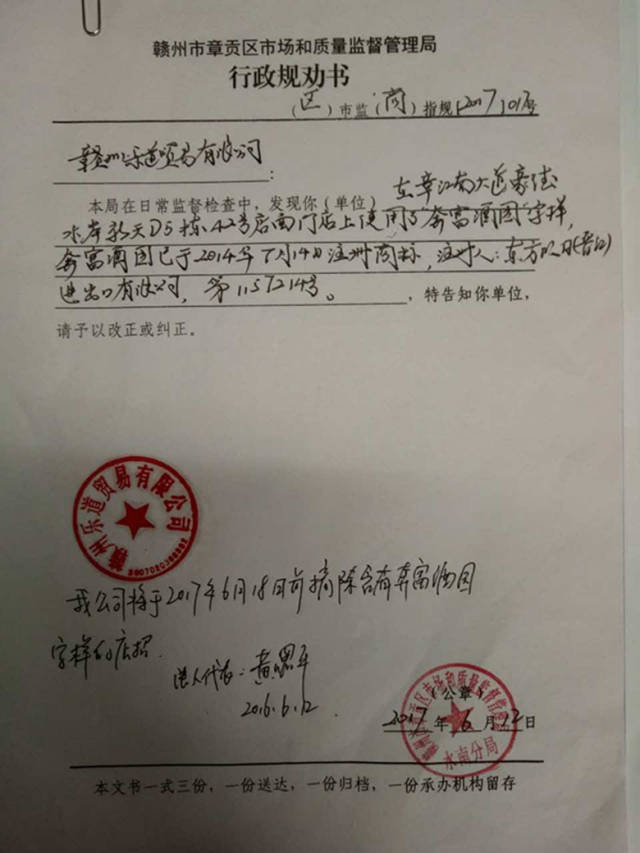 赣州市章贡区市场和质量监督管理局
行政规劝书
（区）市监（商）指规[2017]017号
赣州乐道贸易有限公司：
本局在日常监督检查中，发现你（单位）在章江南大道豪德
水岸新天D5栋42号店面门店上使用了奔富酒园字样，
奔富酒园已于2014年7月14日注册商标，注册人：东方
进出口有限公司，第11572149号。，特告知你单位，
请予以改正或纠正。
赣州乐道贸易有限公司
我公司将于2017年6月18日前摘除含有奔富酒园
字样的店招
法人代表：黄
2016.6.12
（公章）
2017年6月12日
赣州市章贡区市场和质量监督管理局
水南分局
本文书一式三份，一份送达，一份归档，一份承办机构留存